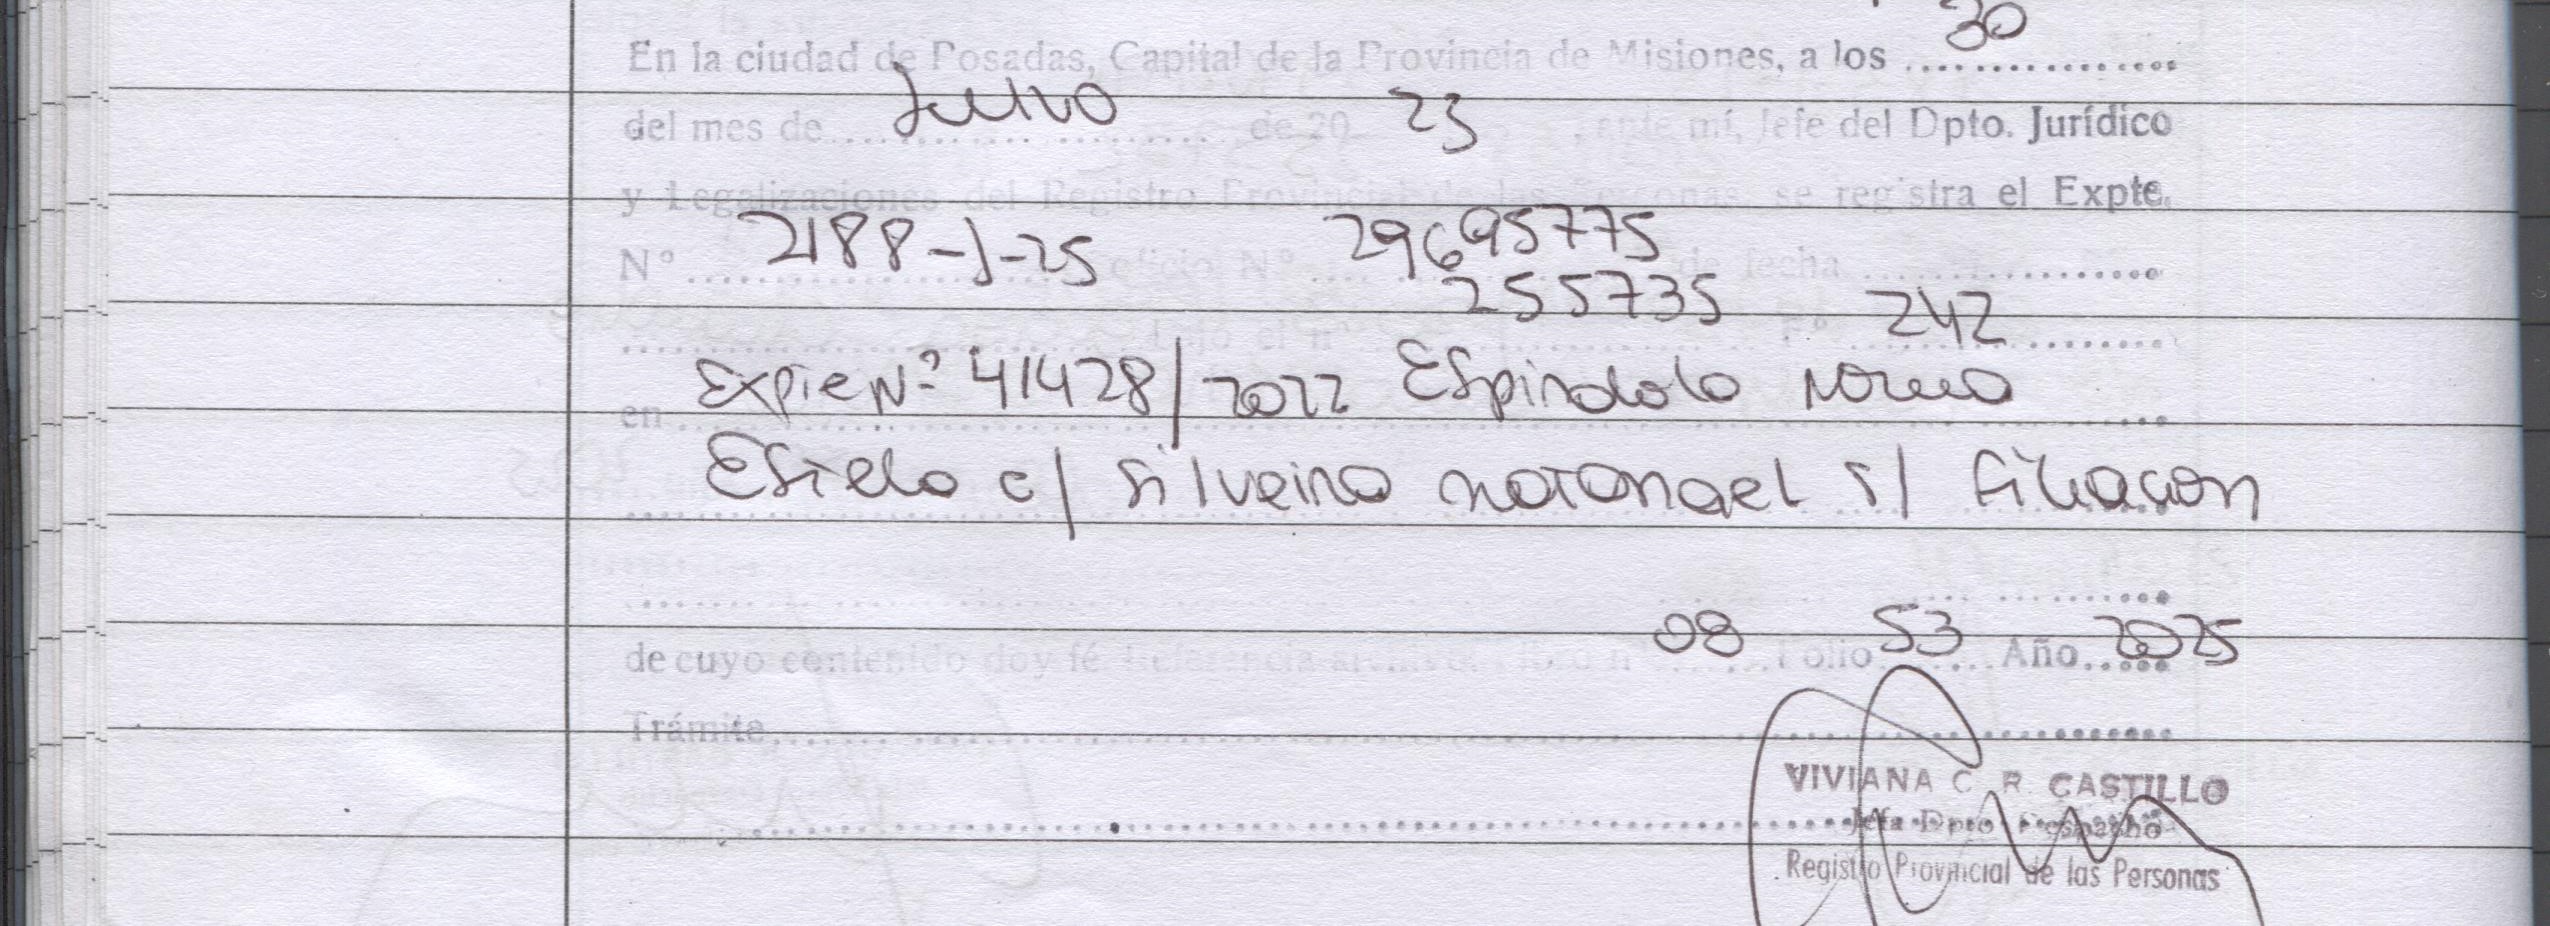 30
En la ciudad de Posadas, Capital de la Provincia de Misiones, a los ................
Julio 25
del mes de ........................ de 20 , ante mí, Jefe del Dpto. Jurídico
y Legalizaciones del Registro Provincial de las Personas, se registra el Expte.
2188-J-25 29695775
N° .................... oficio N° .... de fecha ................
255735 242
bajo el n° F° ..........
Expte N° 41428/2022 Espindola Norma
en
Estela c/ Silveira Natanael s/ filiacion
08 53 2025
de cuyo contenido doy fé. Referencia Folio ...... Año ......
Trámite ................
VIVIANA C. R. CASTILLO
Jefa Dpto Despacho
Registro Provincial de las Personas